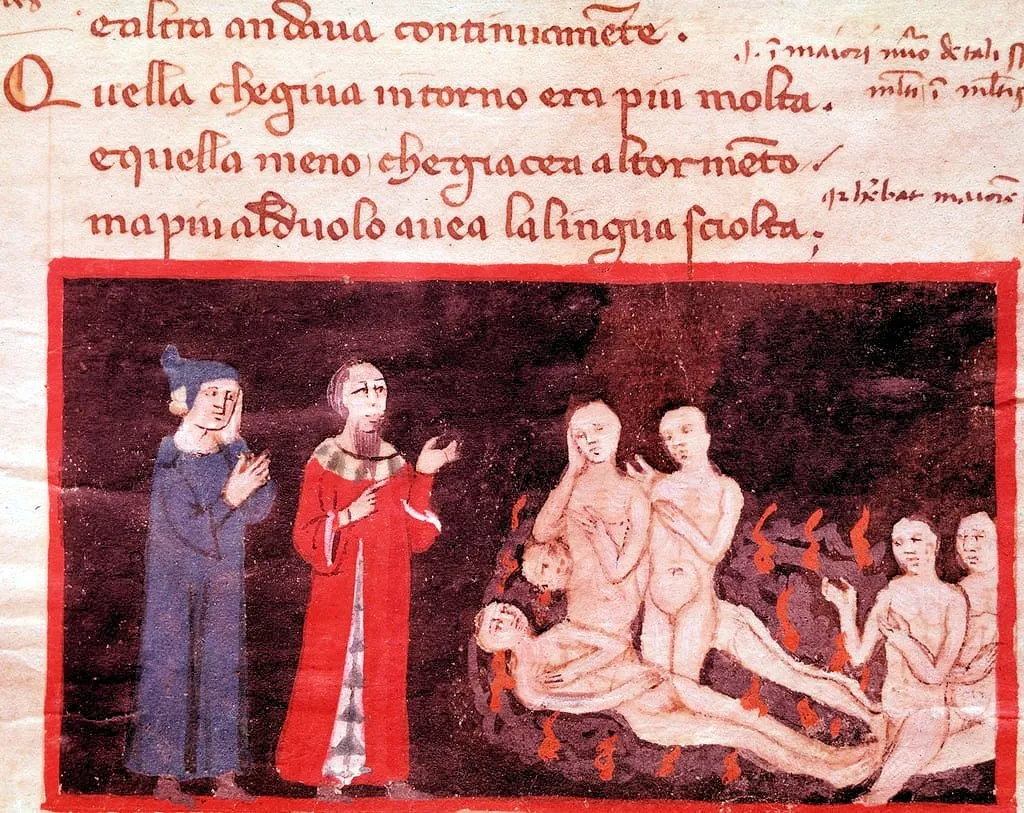 e altra andaua continuam̄ete .
Quella che giua intorno era piu molta .
e quella meno che giacea al torm̄eto
ma piu al duolo auea la lingua sciolta ;
.s. ī maiori nūo de tali
q̄ hēbat maiorē